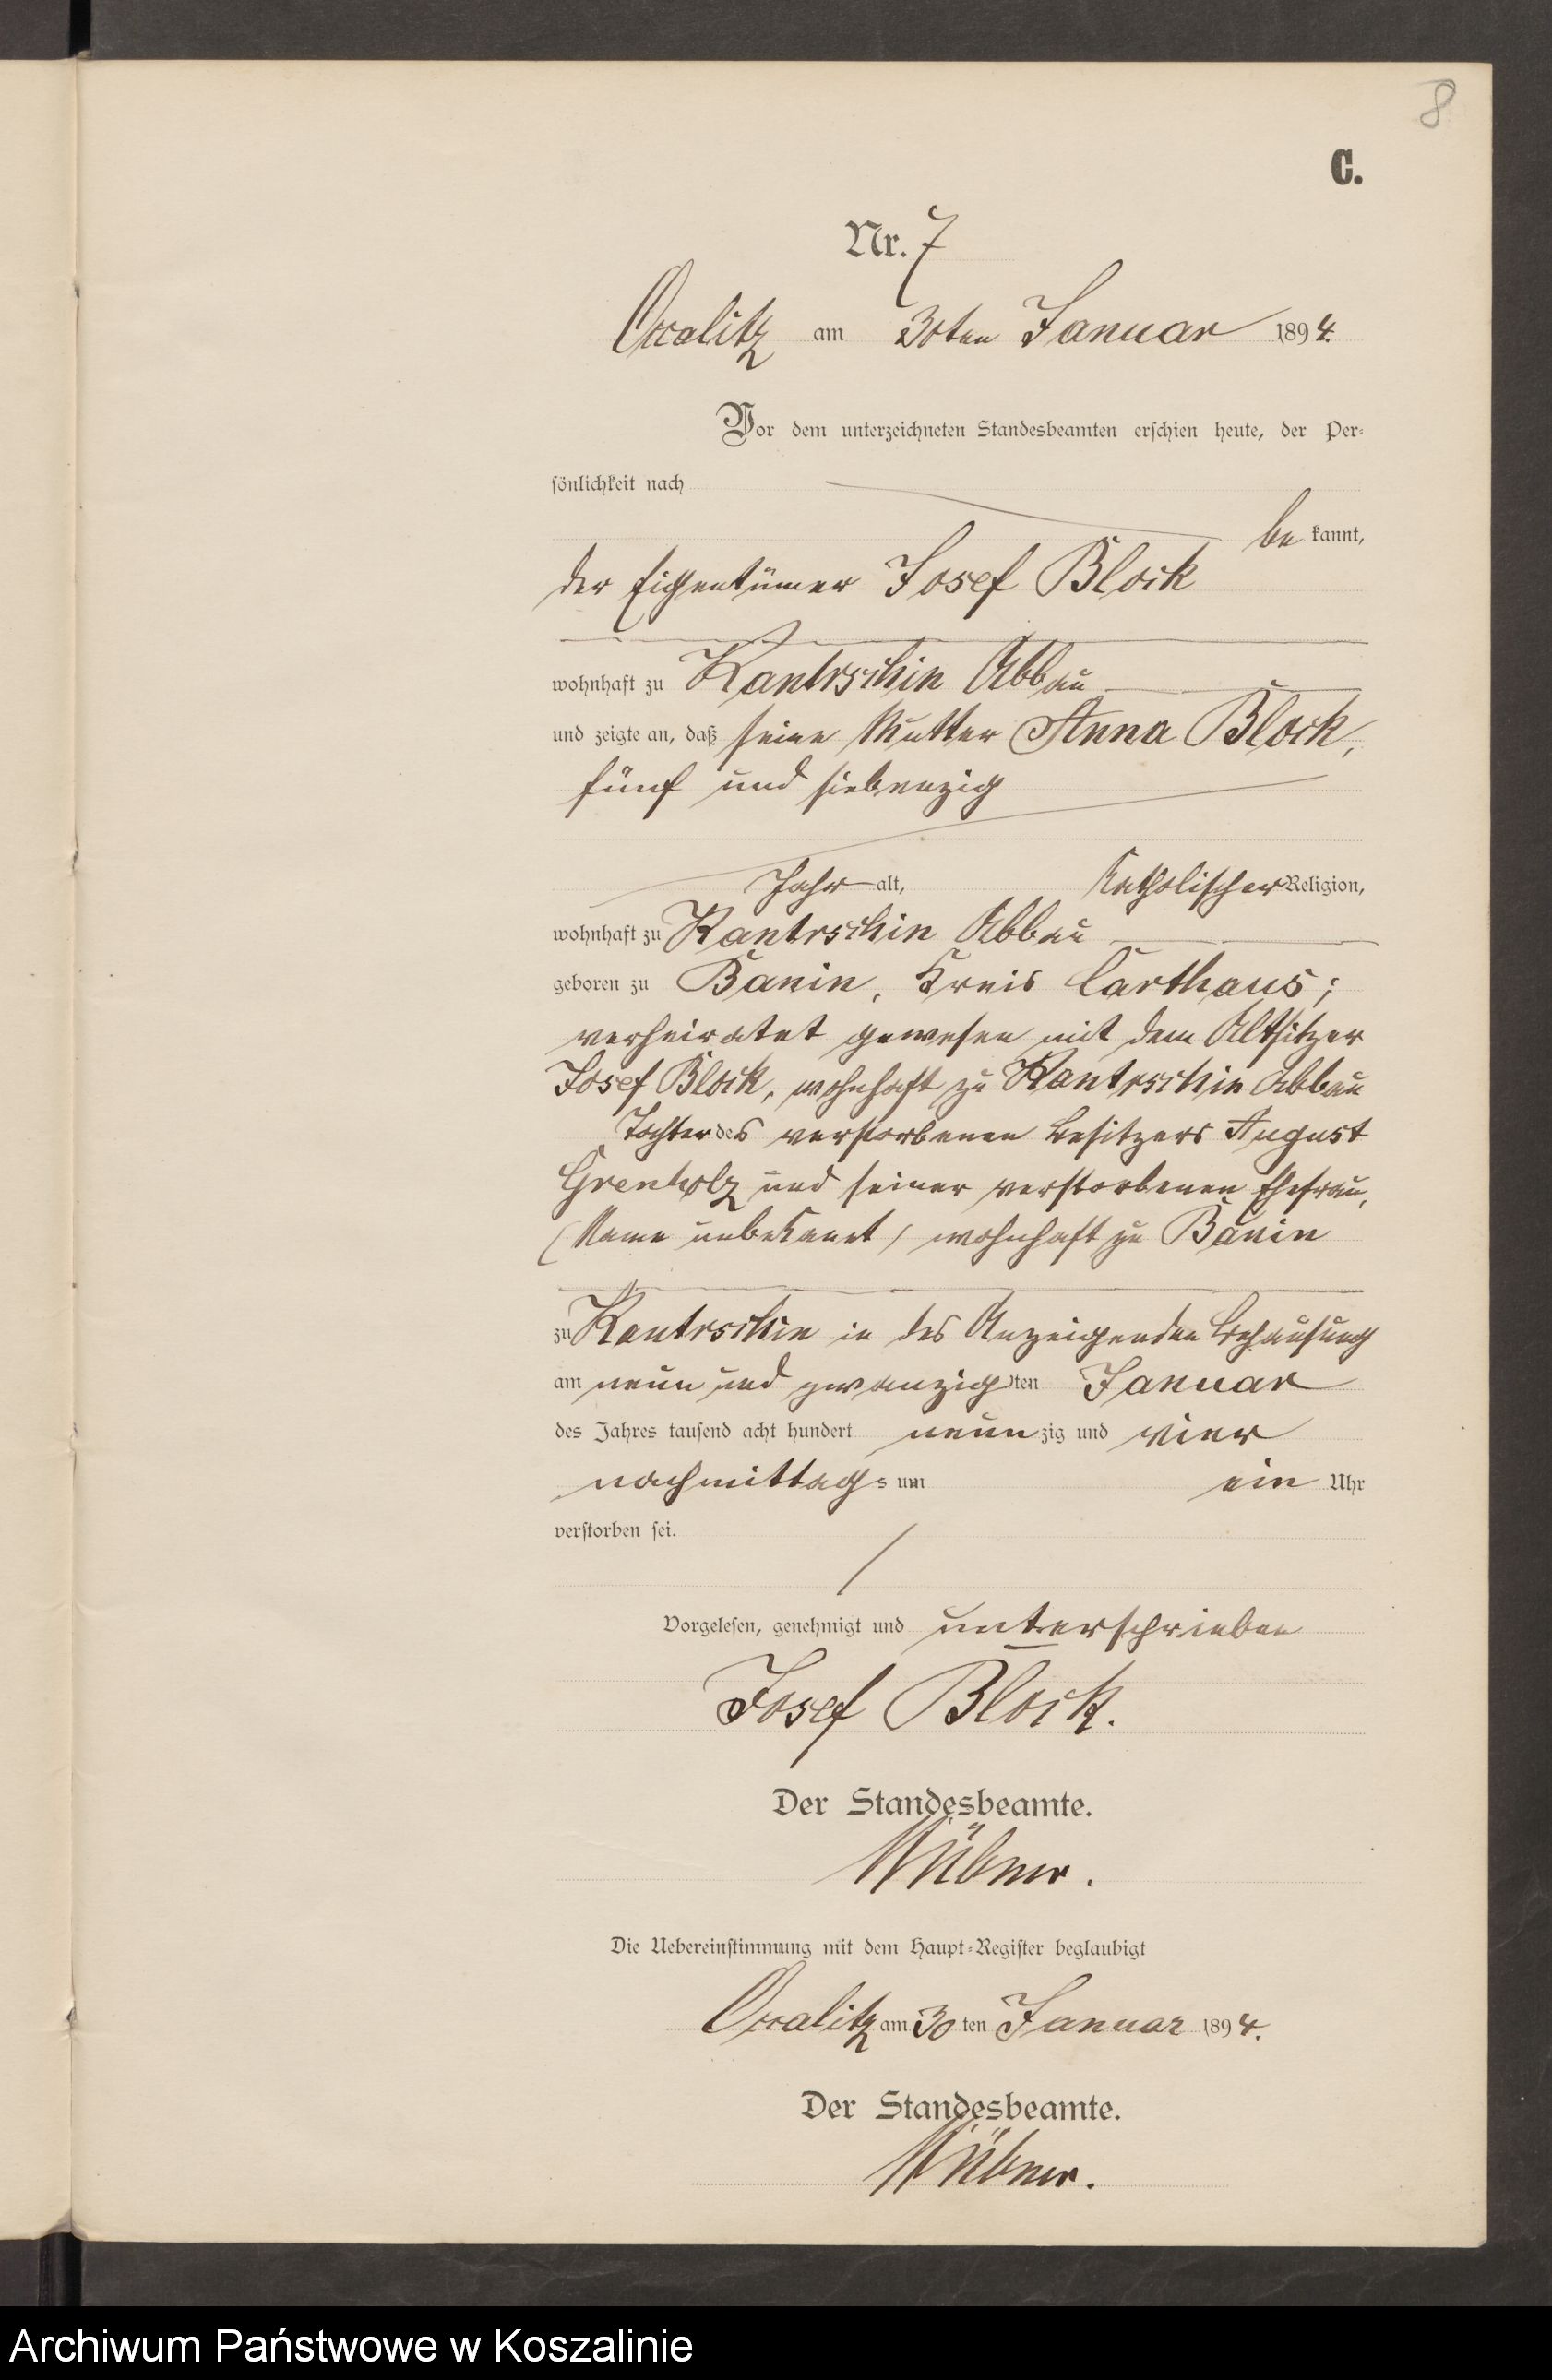 8
C.
Nr. 7
Occalitz am 30ten Januar 1894.
Vor dem unterzeichneten Standesbeamten erschien heute, der Per-
sönlichkeit nach
be kannt,
der Eigentümer Josef Block
wohnhaft zu Kantrschin Abbau
und zeigte an, daß seine Mutter Anna Block,
fünf und siebenzig
Jahr alt, katholischer Religion,
wohnhaft zu Kantrschin Abbau
geboren zu Banin, Kreis Carthaus;
verheiratet gewesen mit dem Altsitzer
Josef Block, wohnhaft zu Kantrschin Abbau
Tochter des verstorbenen Besitzers August
Grenholz und seiner verstorbenen Ehefrau,
(Name unbekannt) wohnhaft zu Banin
zu Kantrschin in des Anzeigenden Behausung
am neun und zwanzigsten Januar
des Jahres tausend acht hundert neunzig und vier
nachmittags um ein Uhr
verstorben sei.
Vorgelesen, genehmigt und unterschrieben
Josef Block.
Der Standesbeamte.
Die Uebereinstimmung mit dem Haupt-Register beglaubigt
Occalitz am 30ten Januar 1894.
Der Standesbeamte.
Archiwum Państwowe w Koszalinie